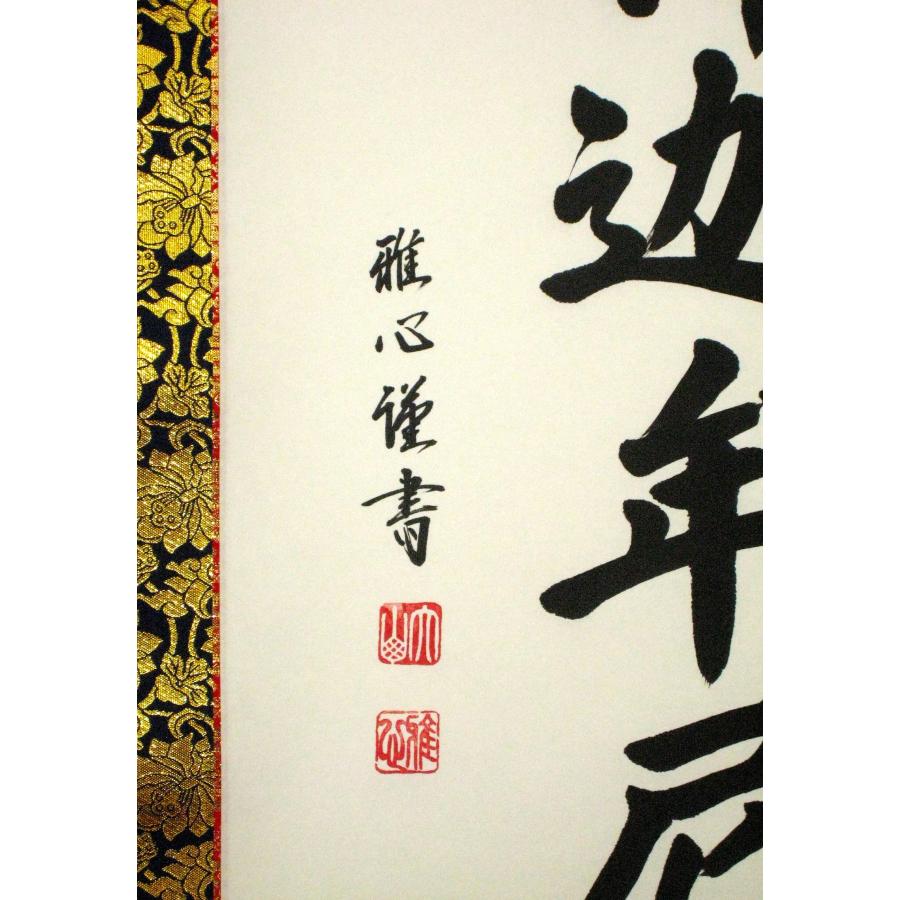 边年
雅心謹書
雅心